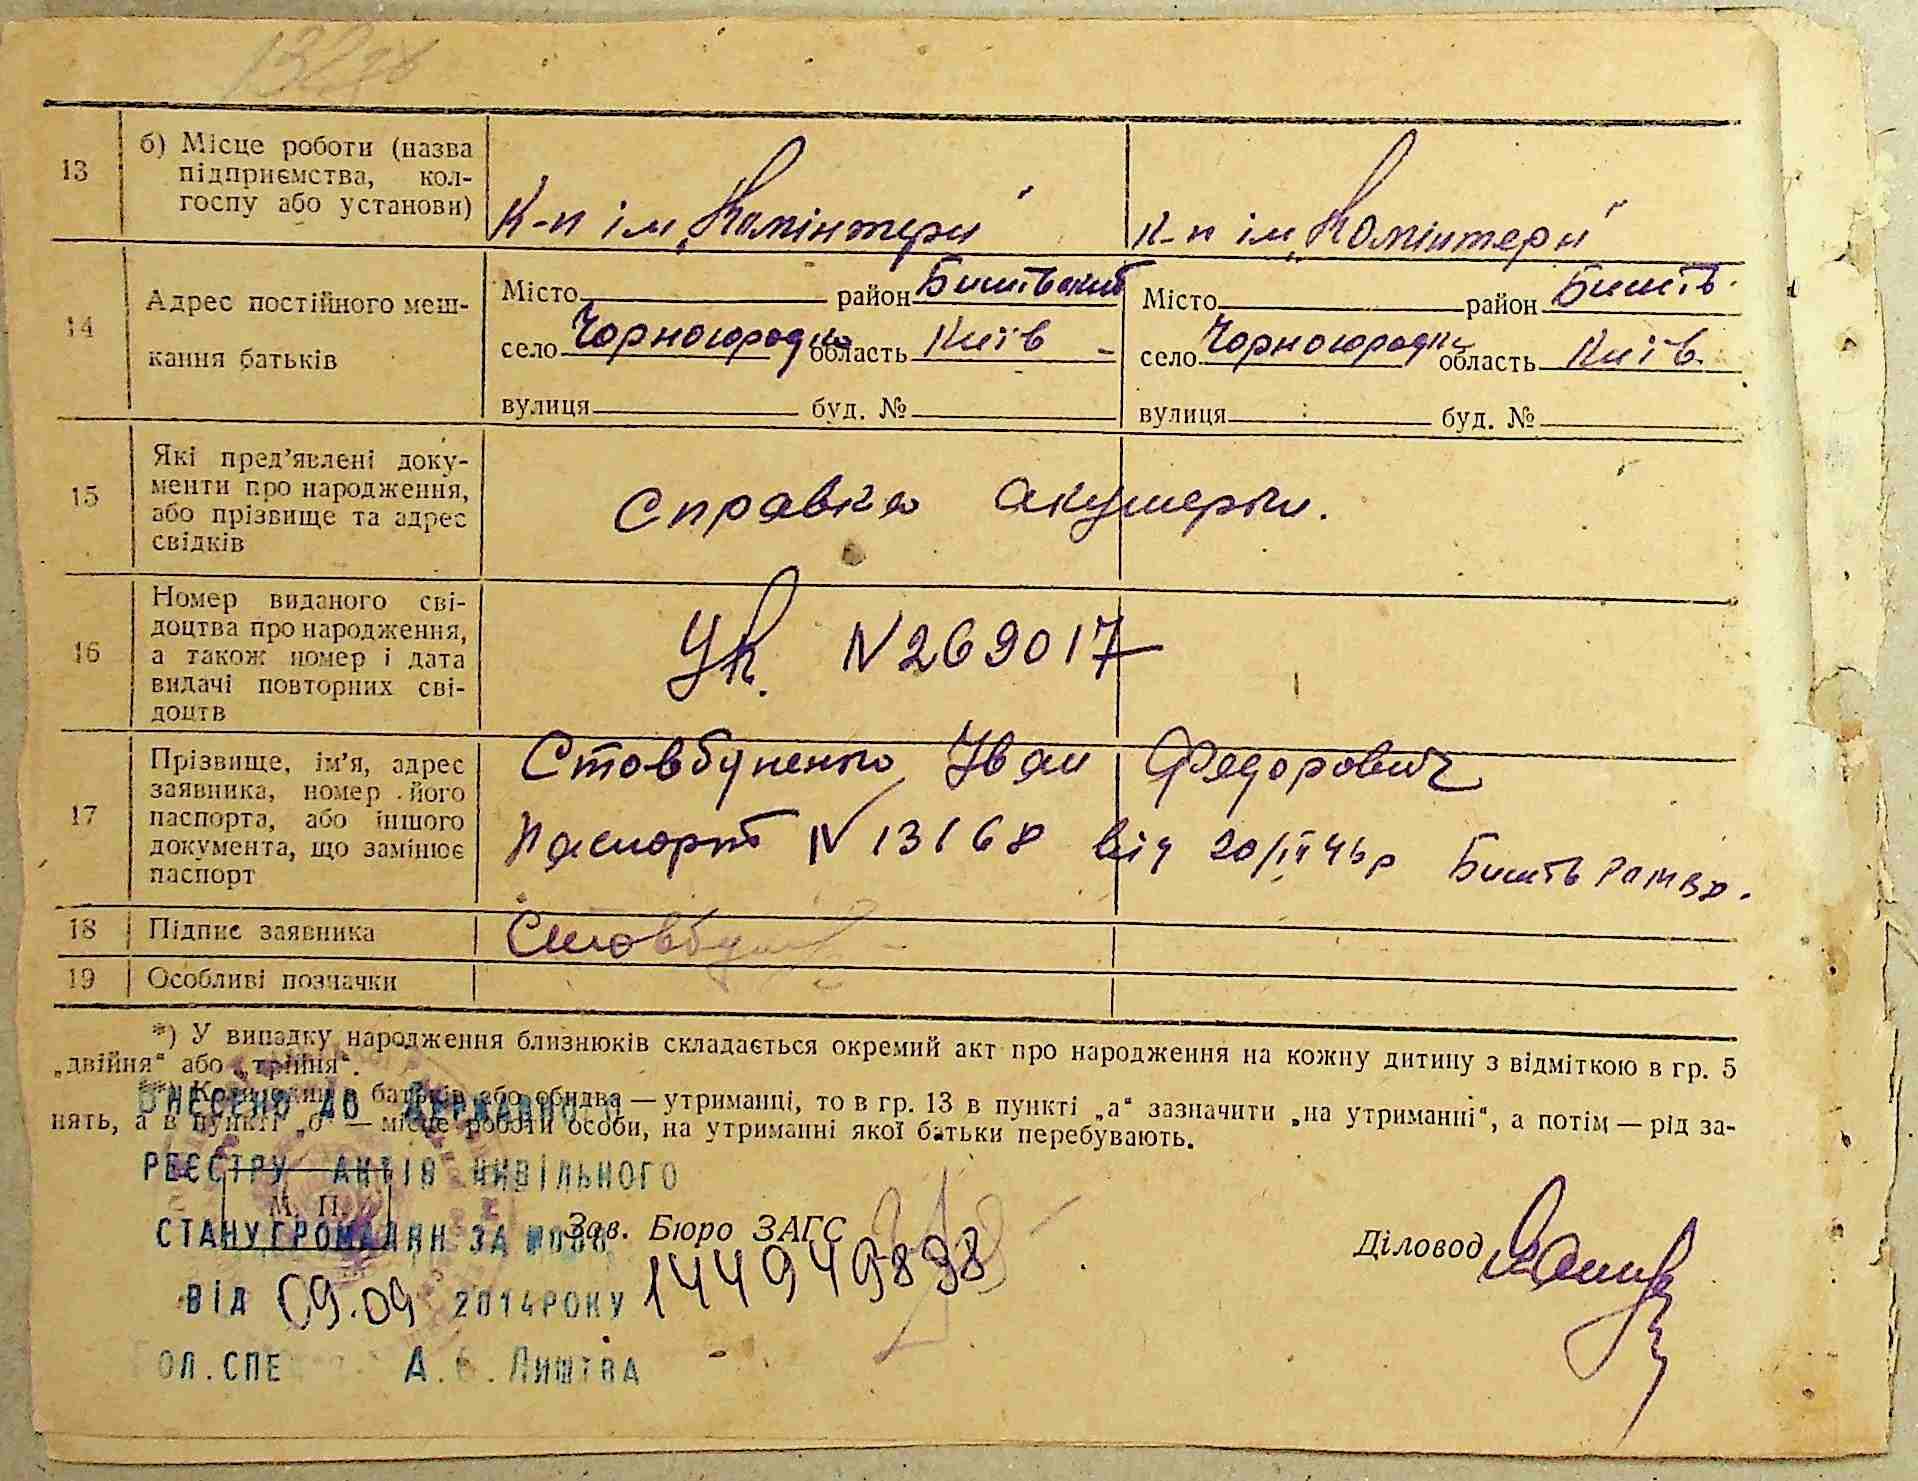 13
б) Місце роботи (назва
підприємства, кол-
госпу або установи)
К-п ім. „Комінтерн"
К-п ім. „Комінтерн"
14
Адрес постійного меш-
кання батьків
Місто район Бишівський
село Чорногородка область Київ -
вулиця буд. №
Місто район Бишів.
село Чорногородка область Київ.
вулиця буд. №
15
Які пред'явлені доку-
менти про народження,
або прізвище та адрес
свідків
Справка акушерки.
16
Номер виданого сві-
доцтва про народження,
а також номер і дата
видачі повторних сві-
доцтв
N 269017
17
Прізвище, ім'я, адрес
заявника, номер його
паспорта, або іншого
документа, що замінює
паспорт
Стовбуненко Іван Федорович
Паспорт N 13168 від Бишів
18
Підпис заявника
19
Особливі позначки
*) У випадку народження близнюків складається окремий акт про народження на кожну дитину з відміткою в гр. 5
„двійня" або „трійня".
**) Коли один з батьків або обидва — утриманці, то в гр. 13 в пункті „а" зазначити „на утриманні", а потім — рід за-
нять, а в пункті „б" — місце роботи особи, на утриманні якої батьки перебувають.
ВНЕСЕНО ДО ДЕРЖАВНОГО
РЕЄСТРУ АКТІВ ЦИВІЛЬНОГО
М. П.
СТАНУ ГРОМАДЯН ЗА №
Зав. Бюро ЗАГС
144949898
Діловод
ВІД 09.09 2014 РОКУ
ГОЛ. СПЕЦ А. Лиштва